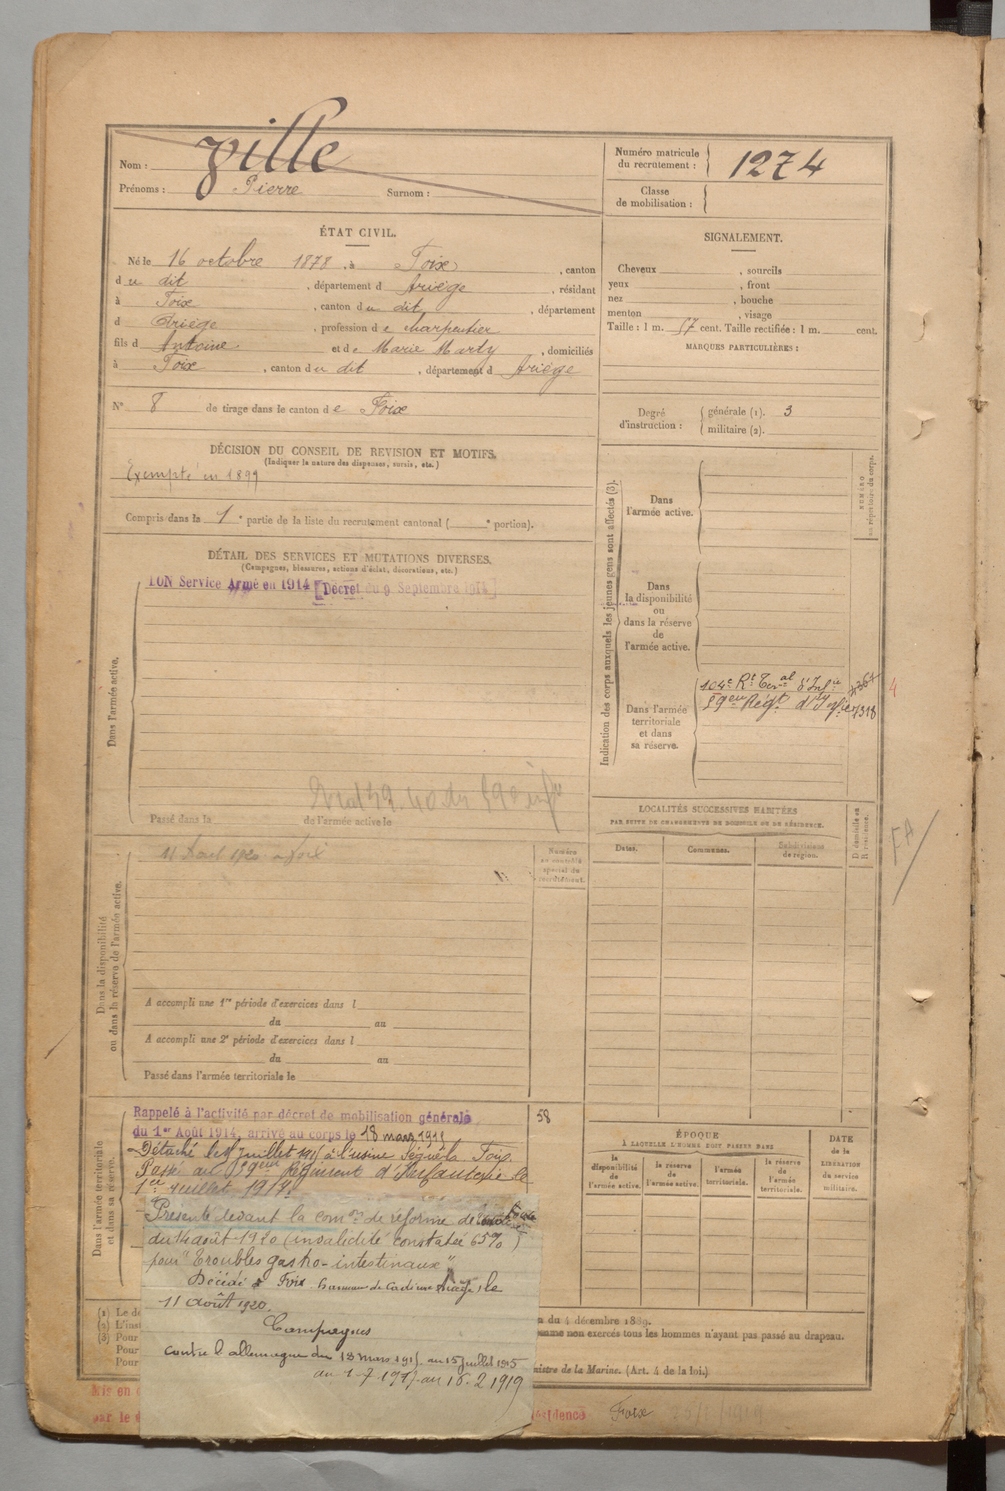 Nom : Ville
Prénoms : Pierre Surnom :
Numéro matricule du recrutement : 1274
Classe de mobilisation :
ÉTAT CIVIL.
Né le 16 octobre 1878, à Foix, canton
du dit, département d Ariège, résidant
à Foix, canton du dit, département
d Ariège, profession de charpentier
fils d Antoine et de Marie Marty, domiciliés
à Foix, canton du dit, département d Ariège
N° 8 de tirage dans le canton de Foix
SIGNALEMENT.
Cheveux , sourcils
yeux , front
nez , bouche
menton , visage
Taille : 1 m. 57 cent. Taille rectifiée : 1 m. cent.
MARQUES PARTICULIÈRES :
Degré d'instruction : générale (1). 3
militaire (2).
DÉCISION DU CONSEIL DE REVISION ET MOTIFS.
(Indiquer la nature des dispenses, sursis, etc.)
Exempté en 1899
Compris dans la 1e partie de la liste du recrutement cantonal ( e portion).
DÉTAIL DES SERVICES ET MUTATIONS DIVERSES.
(Campagnes, blessures, actions d'éclat, décorations, etc.)
Service Armé en 1914 [Décret du 9 Septembre 1914]
Dans l'armée active.
Passé dans la de l'armée active le
Indication des corps auxquels les jeunes gens sont affectés (3).
NUMÉRO au répertoire du corps.
Dans l'armée active.
Dans la disponibilité ou dans la réserve de l'armée active.
Dans l'armée territoriale et dans sa réserve.
104e Rt Teral d'Infie
59eme Régt d'Infie
LOCALITÉS SUCCESSIVES HABITÉES
PAR SUITE DE CHANGEMENTS DE DOMICILE OU DE RÉSIDENCE.
Dates. Communes. Subdivisions de région. D domicile ou R résidence.
FA
Dans la disponibilité ou dans la réserve de l'armée active.
11 Aout 1920 Foix
Numéro au contrôle spécial du recrutement.
A accompli une 1re période d'exercices dans l
du au
A accompli une 2e période d'exercices dans l
du au
Passé dans l'armée territoriale le
Dans l'armée territoriale et dans sa réserve.
Rappelé à l'activité par décret de mobilisation générale
du 1er Août 1914, arrivé au corps le 18 mars 1915
58
Détaché le 15 juillet 1915 à l'usine Foix.
Passé au 59eme Régiment d'Infanterie le
1er Juillet 1917.
Présenté devant la comon de réforme de Foix
du 11 août 1920 (invalidité constatée 65%)
pour "Troubles gastro-intestinaux"
Décédé à Foix (Ariège) le
11 août 1920.
Campagnes
contre l'allemagne du 18 mars 1915 au 15 juillet 1915
du 1-7-1917 au 16.2.1919
ÉPOQUE
À LAQUELLE L'HOMME DOIT PASSER DANS
la disponibilité de l'armée active. la réserve de l'armée active. l'armée territoriale. la réserve de l'armée territoriale.
DATE de la LIBÉRATION du service militaire.
(1) Le de
(2) L'inst
(3) Pour
Pour
Pour
du 4 décembre 1889.
non exercés tous les hommes n'ayant pas passé au drapeau.
nistre de la Marine. (Art. 4 de la loi.)
par le
résidence Foix